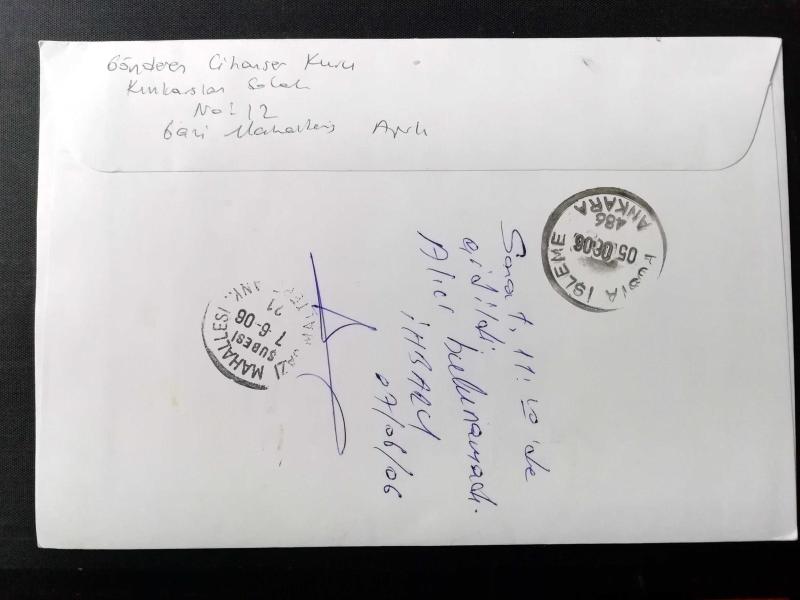 Gönderen Cihanser Kuru
Kınkarslan Sokak
No: 12
Gazi Mahallesi
Saat, 11:40'de
gidildi
bulunamadı.
Alıcı
İHBARLI
07/06/06
POSTA İŞLEME
05.06.06
486
ANKARA
MAHALLESİ
ŞUBESİ
7-6-06
21
ANK.